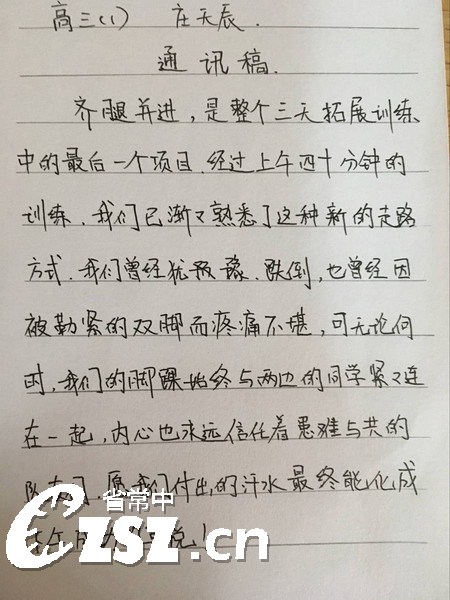 高三(1) 庄天辰.
通讯稿.
齐腿并进，是整个三天拓展训练
中的最后一个项目.经过上午四十分钟的
训练.我们已渐々熟悉了这种新的走路
方式.我们曾经犹豫.跌倒,也曾经因
被勒紧的双脚而疼痛不堪,可无论何
时,我们的脚踝始终与两边的同学紧々连
在一起,内心也永远信任着患难与共的
队友们.愿我们付出的汗水最终能化成
省常中
CZSZ.com